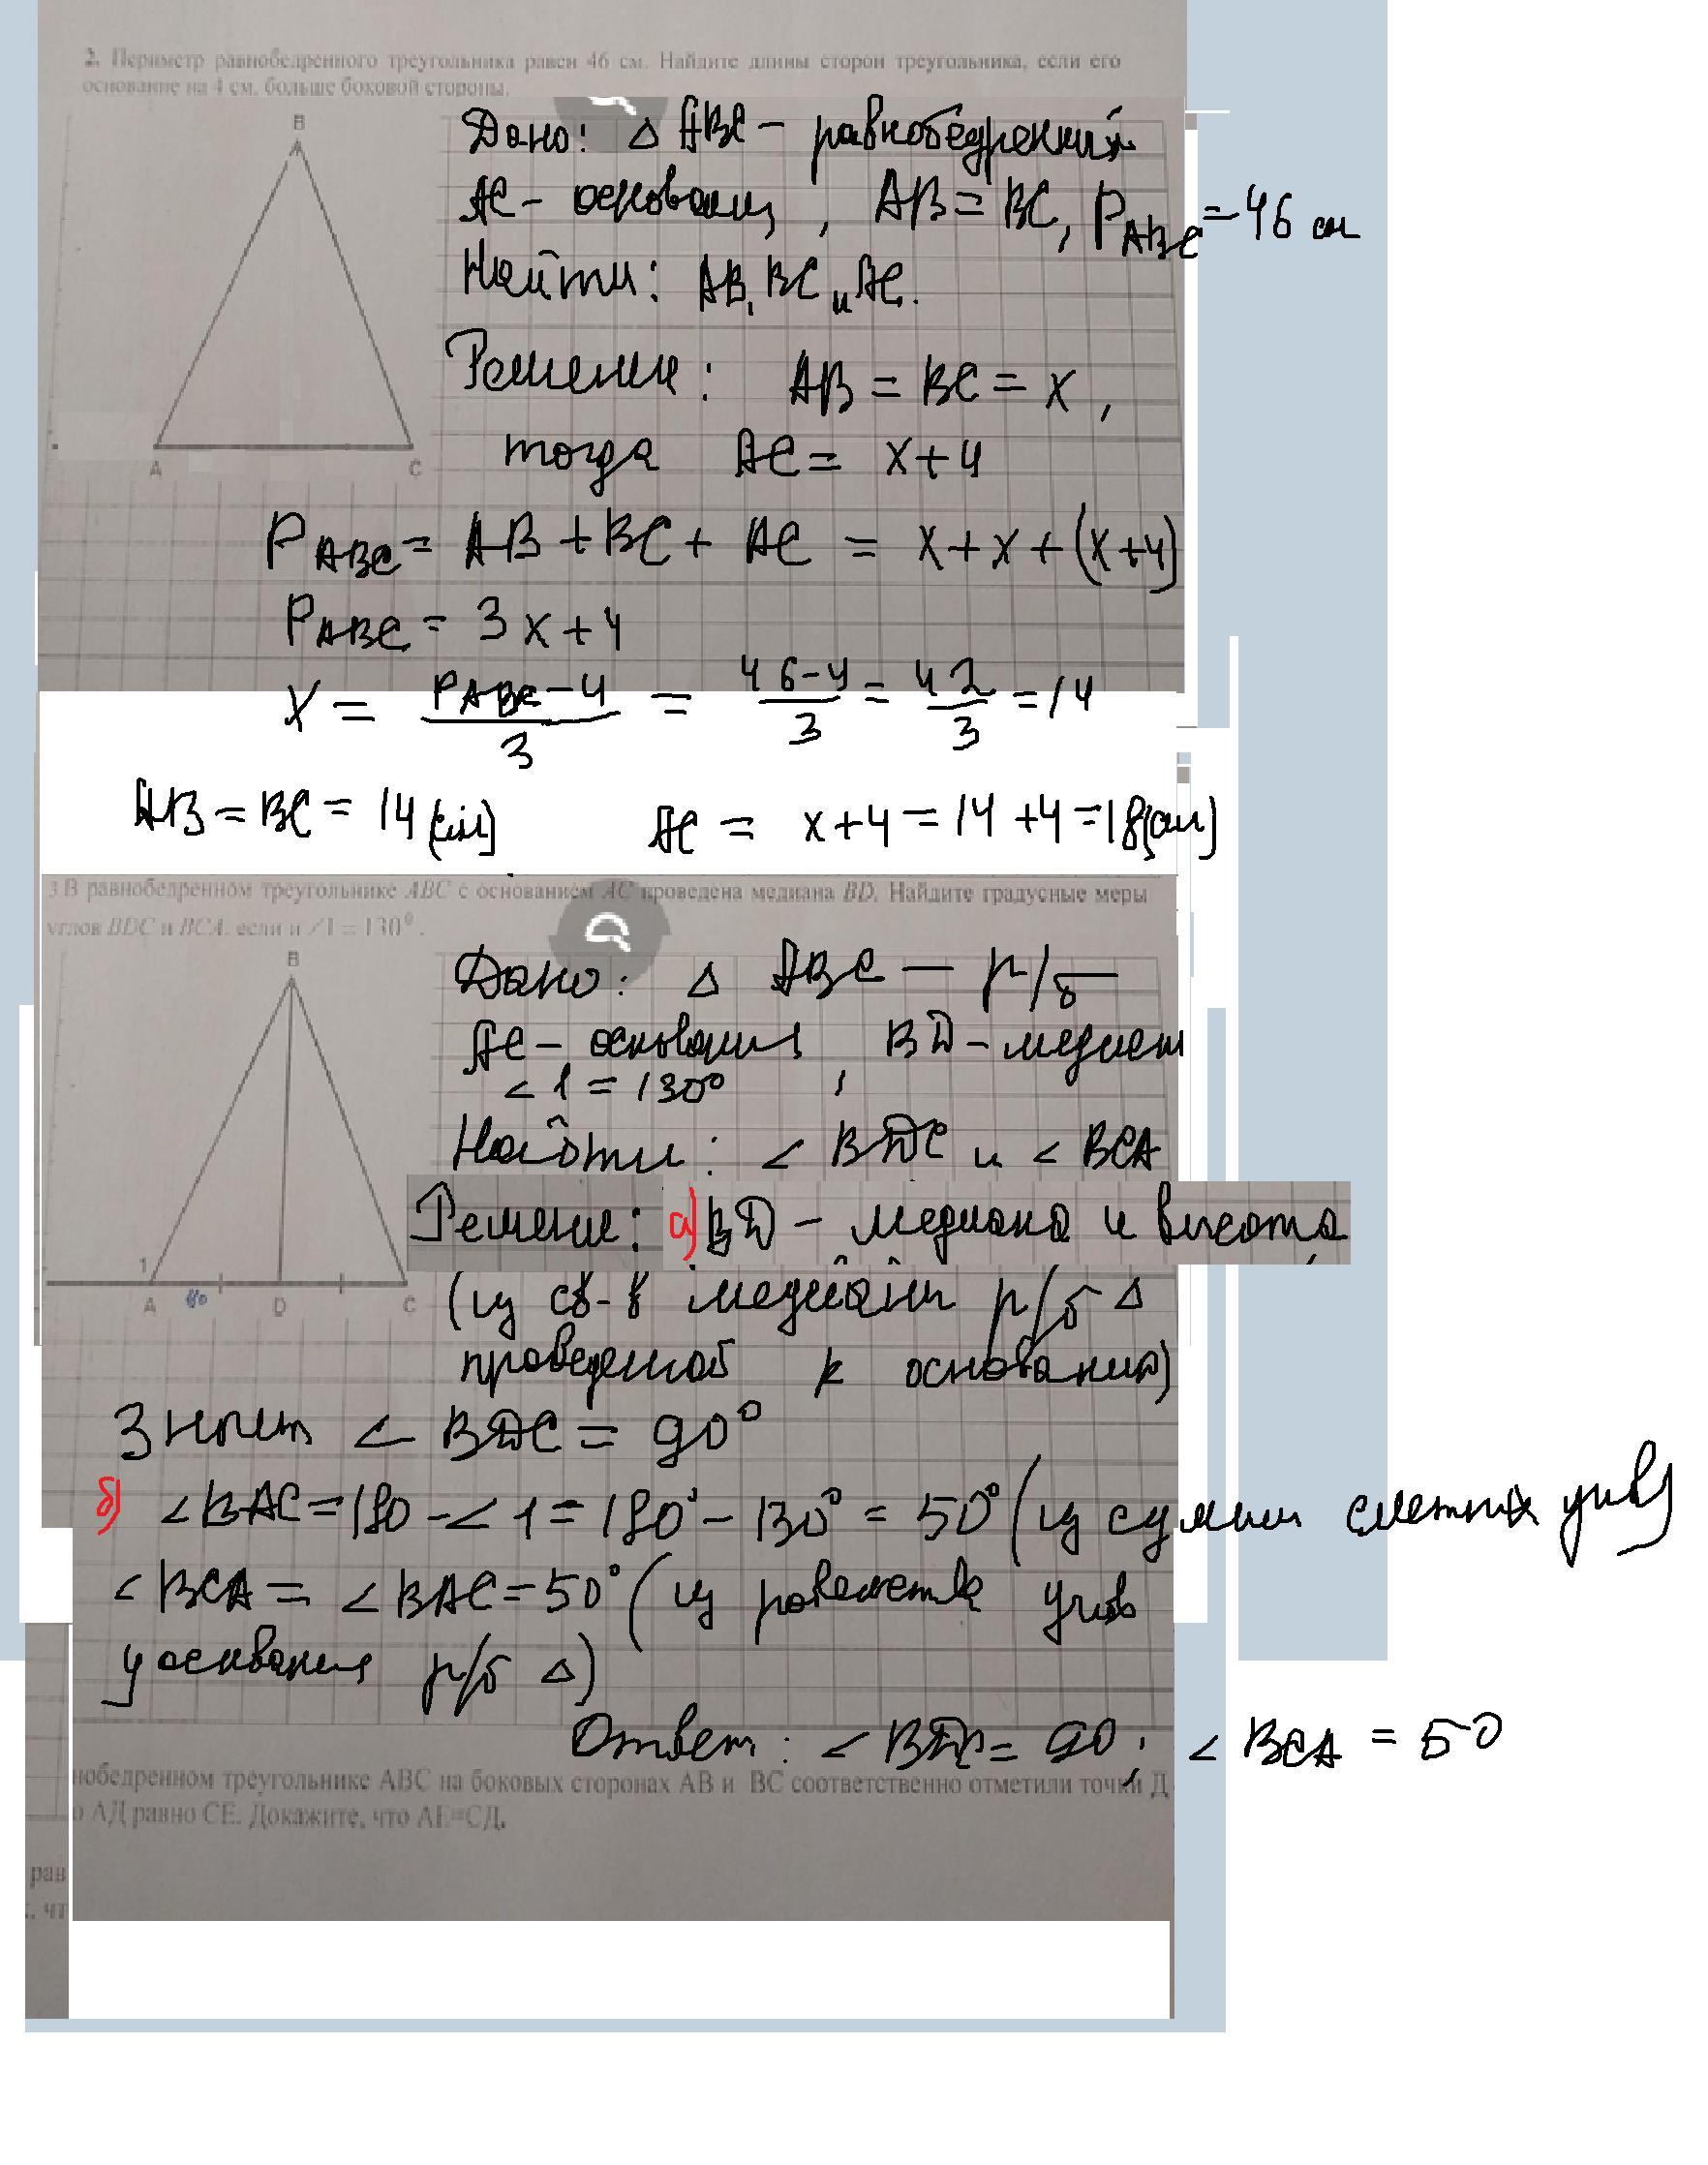 2. Периметр равнобедренного треугольника равен 46 см. Найдите длины сторон треугольника, если его
основание на 4 см. больше боковой стороны.
B
A
C
Дано: Δ ABC - равнобедренный
AC - основание, AB = BC, P ABC = 46 см
Найти: AB, BC и AC.
Решение: AB = BC = x,
тогда AC = x+4
P ABC = AB + BC + AC = x + x + (x+4)
P ABC = 3x+4
x = P ABC - 4 / 3 = 46-4 / 3 = 42 / 3 = 14
AB = BC = 14 (см) AC = x+4 = 14+4 = 18(см)
3 В равнобедренном треугольнике ABC с основанием AC проведена медиана BD. Найдите градусные меры
углов BDC и BCA. если и ∠1 = 130⁰.
B
1
A
D
C
Дано: Δ ABC — р/б
AC - основание, BD - медиана
∠1 = 130°
Найти: ∠BDC и ∠BCA
Решение: а) BD - медиана и высота
(из св-в медианы р/б Δ
проведенной к основанию)
Значит ∠BDC = 90°
б) ∠BAC = 180 - ∠1 = 180° - 130° = 50° (из суммы смежных углов)
∠BCA = ∠BAC = 50° (из равенства углов
у основания р/б Δ)
Ответ: ∠BDC = 90; ∠BCA = 50
нобедренном треугольнике ABC на боковых сторонах AB и BC соответственно отметили точки Д
о АД равно CE. Докажите, что AE=CД.
рав
, чт